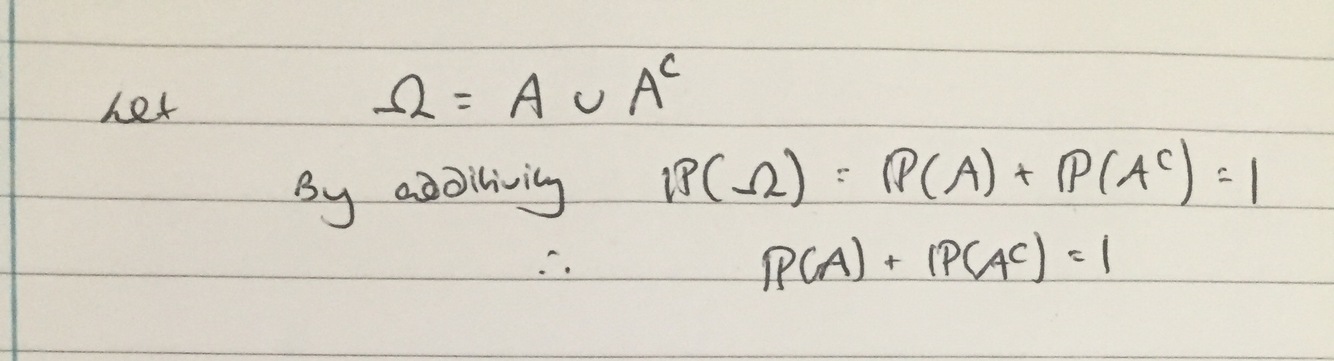 Let Ω = A ∪ Aᶜ
By additivity ℙ(Ω) = ℙ(A) + ℙ(Aᶜ) = 1
∴ ℙ(A) + ℙ(Aᶜ) = 1